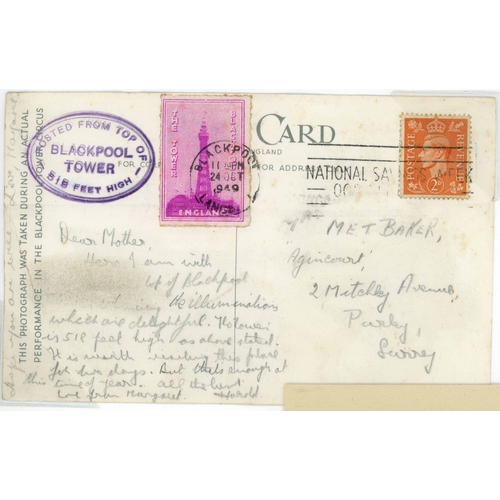 THIS PHOTOGRAPH WAS TAKEN DURING AN ACTUAL
PERFORMANCE IN THE BLACKPOOL TOWER CIRCUS
POSTED FROM TOP OF
BLACKPOOL
TOWER
518 FEET HIGH
THE TOWER
BLACKPOOL
ENGLAND
CARD
ENGLAND
FOR ADDRESS
BLACKPOOL
24 OCT
1949
LANCS
NATIONAL SAVINGS WEEK
POSTAGE
REVENUE
2D
Dear Mother,
Here I am with
top of Blackpool
illuminations
which are delightful. The Tower
is 518 feet high as above stated.
It is worth visiting this place
for two days. But that's enough at
this time of year. All the best
love from Margaret. Harold
hope you are well
Baker,
Agincourt,
2 Mitchley Avenue,
Purley,
Surrey